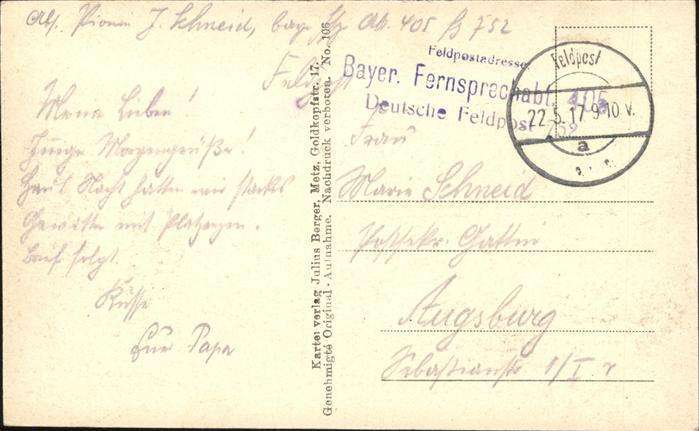 Abs. Pionier J. Schneid, bayr. Fsp. Abt. 405 B 752
Feldpost
Meine Lieben!
Innige Morgengrüße!
Heut Nacht hatten wir starkes
Gewitter mit Platzregen.
Brief folgt.
Küsse
Euer Papa
Kartenverlag Julius Berger, Metz, Goldkopfstr. 17.
Genehmigte Original-Aufnahme. Nachdruck verboten. No. 106
Feldpostadresse
Bayer. Fernsprechabt. 405
Deutsche Feldpost 752
Feldpost
22.5.17 9-10 V.
a
Frau
Marie Schneid
Postsekr. Gattin
Augsburg
Sebastianstr. 1/I r